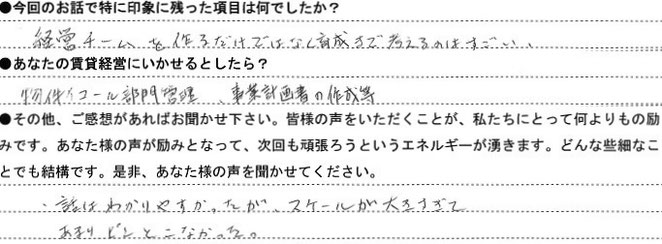 ●今回のお話で特に印象に残った項目は何でしたか？
経営チームを作るだけではなく育成まで考えるのはすごい、
●あなたの賃貸経営にいかせるとしたら？
物件イコール部門管理、事業計画書の作成等
●その他、ご感想があればお聞かせ下さい。皆様の声をいただくことが、私たちにとって何よりもの励
みです。あなた様の声が励みとなって、次回も頑張ろうというエネルギーが湧きます。どんな些細なこ
とでも結構です。是非、あなた様の声を聞かせてください。
・話はわかりやすかったが、スケールが大きすぎて
あまりピンとこなかった。